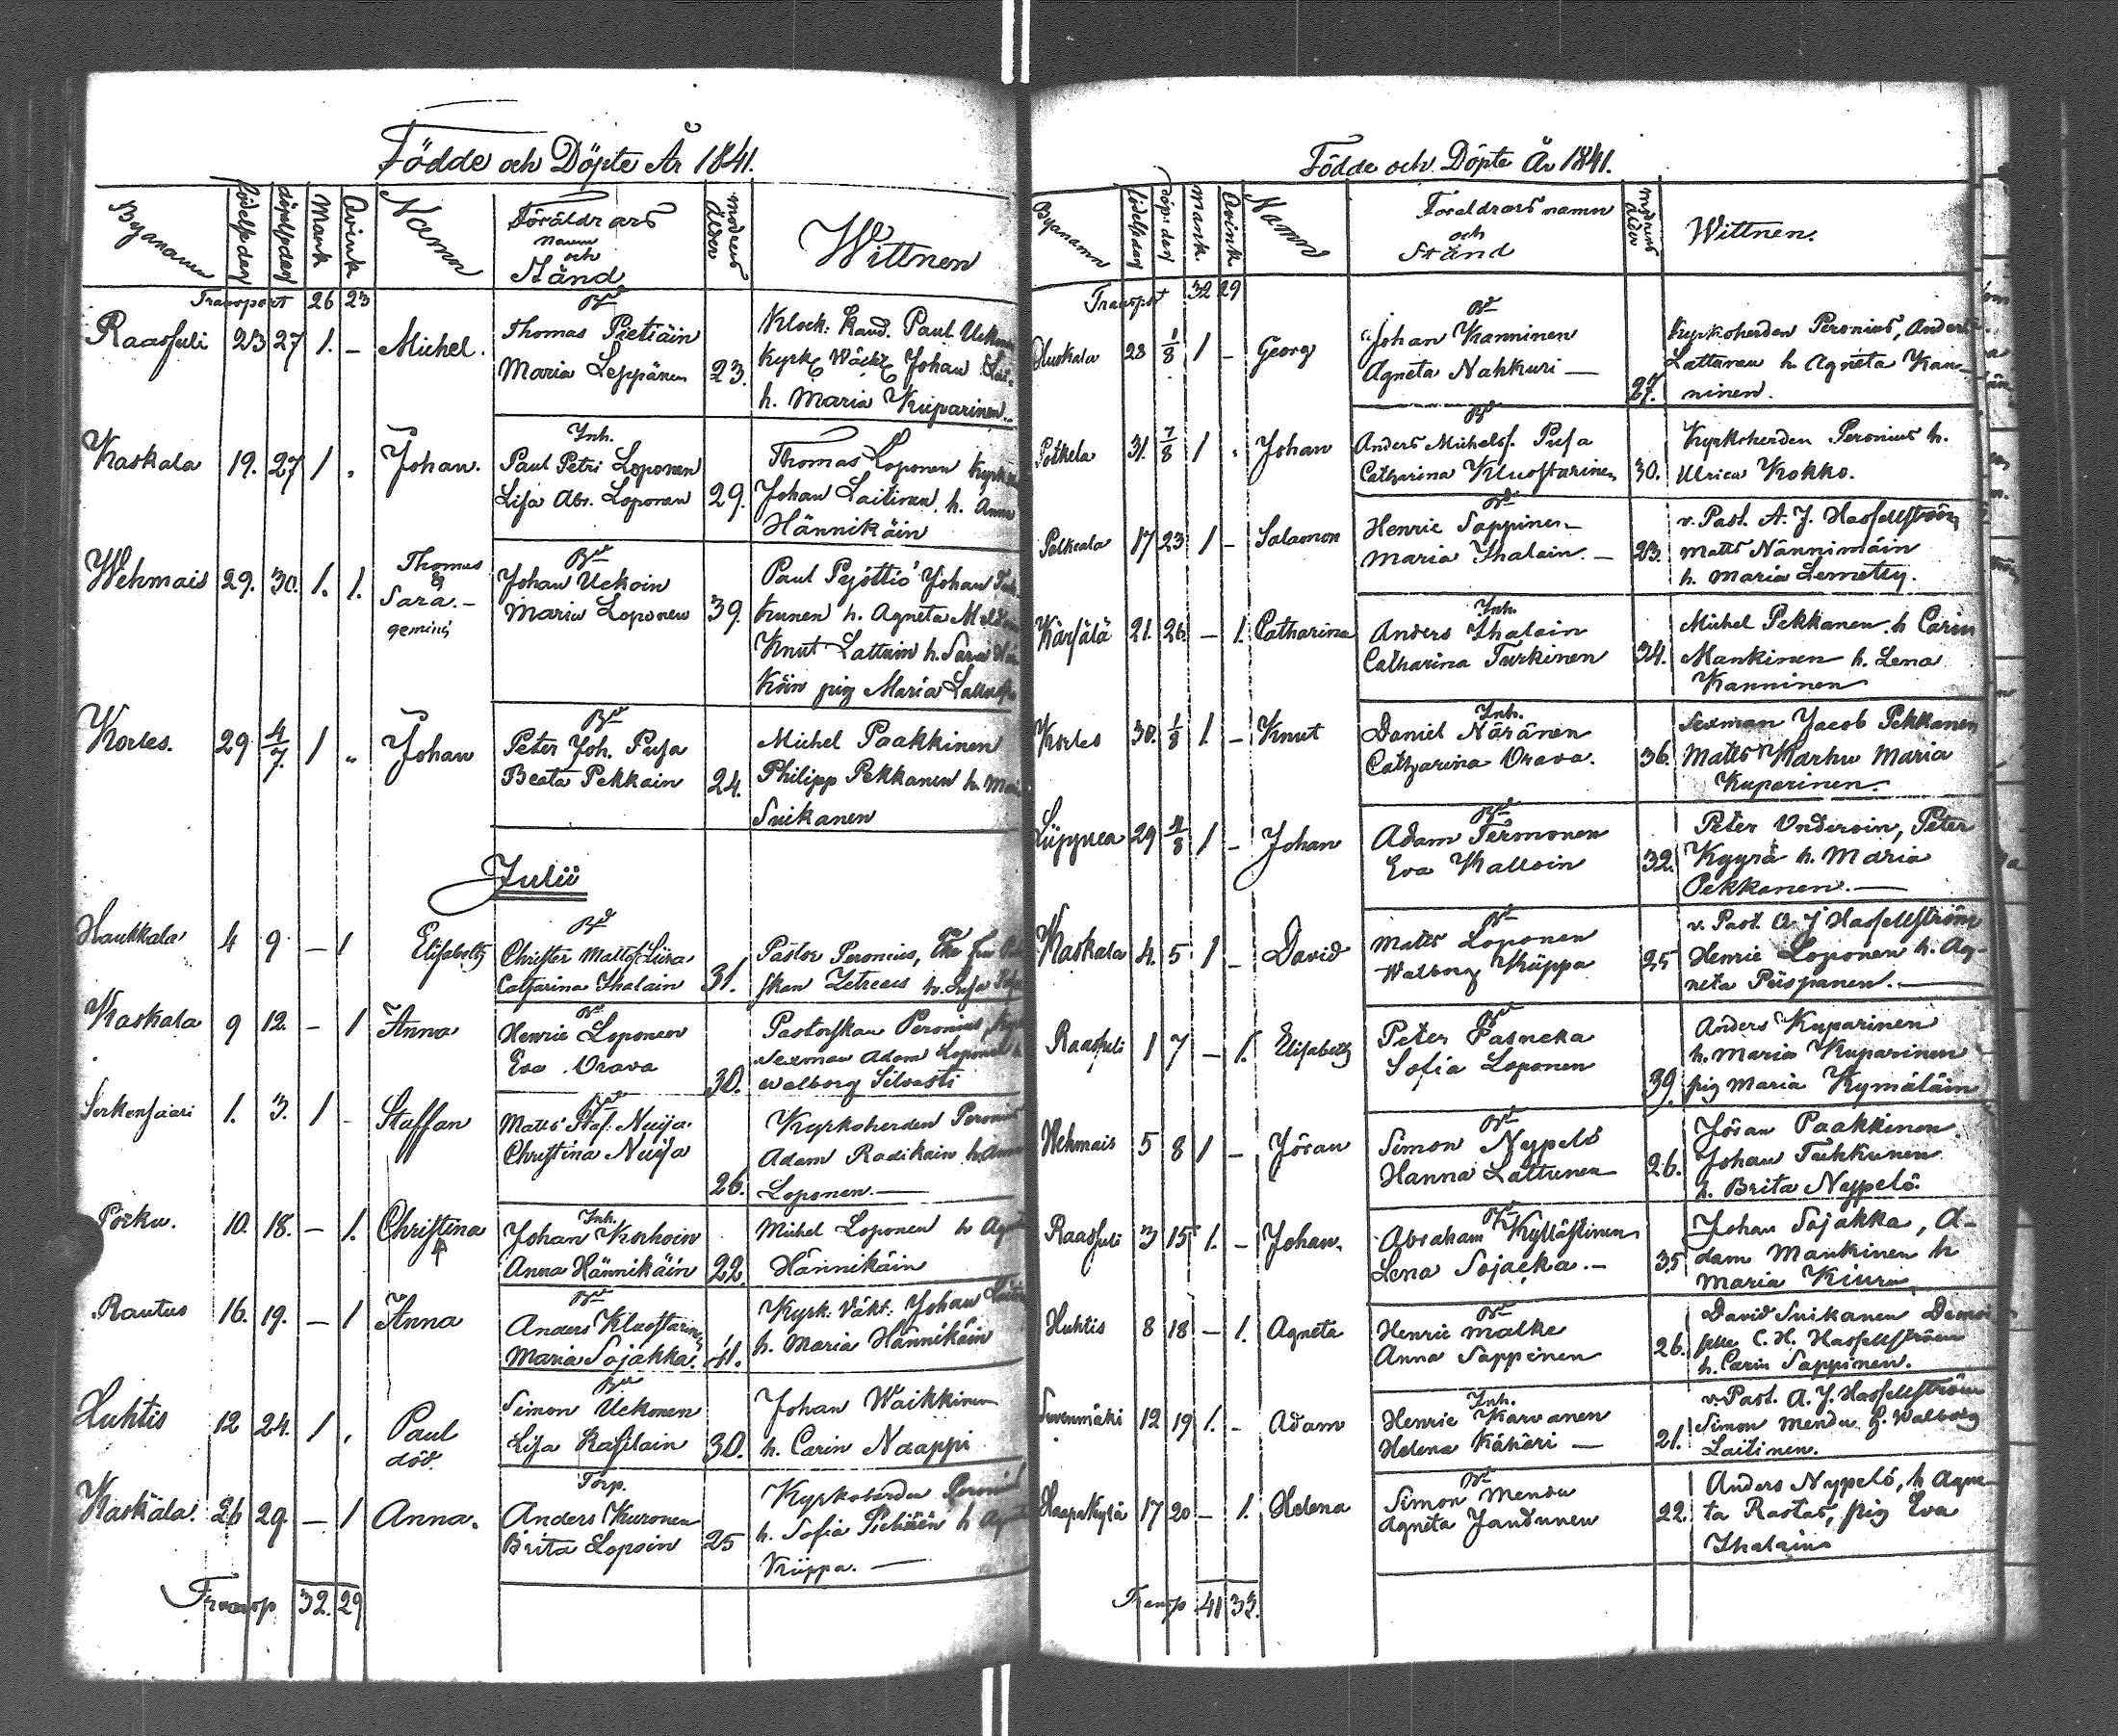 Födde och Döpte År 1841.
Byanamn födelsedag döpelsedag Mank Qvink Namn Föräldrars namn och Stånd modrens Ålder Wittnen
Transport 26 23
Bd
Raasuli 23 27 1. – Michel. Thomas Pietiäin Klock: Kand. Paul
Maria Leppänen 23. Johan
h. Maria Kuparinen.
Inh.
Kaskala 19. 27 1 „ Johan. Paul Petri Loponen Thomas Loponen
Lisa Abr. Loponen 29. Johan Laitinen h. Anna
Hännikäin
Bd
Wehmais 29. 30. 1. 1. Thomas & Sara. – gemini Johan Uckoin Paul Pyöttiö Johan
Maria Loponen 39. kunen h. Agneta
Knut Lattuin h. Sara
Köin pig Maria
Bd
Korles. 29 4/7. 1 „ Johan Peter Joh. Pusa Michel Paakkinen
Beata Pekkain 24. Philipp Pekkanen h.
Suikanen
Julii
Bd
Haukkala 4 9 – 1 Elisabeth Christer Matts Liira Pastor Peronius,
Catharina Ihalain 31. skan Zetreus h. Lisa
Bd
Kaskala 9 12. – 1 Anna Henric Loponen Pastorskan Peronius,
Eva Orava 30. Sexman Adam Loponen h
Walborg Silvasti
Bd
Serkensaari 1. 3. 1 – Staffan Matts Staf. Nuija. Kyrkoherden Peronius
Christina Nuija Adam Radikain h. Anna
26. Loponen. –
Inh.
Porku. 10. 18. – 1. Christina Johan Korhoin Michel Loponen h Agneta
Anna Hännikäin 22. Hännikäin
Bd
Rautus 16. 19. – 1 Anna Anders Kluostarin Kyrk. väkt. Johan
Maria Sojakka. 41. h. Maria Hännikäin
Bd
Huhtis 12 24. 1 , Paul Simon Uckonen Johan Waikkinen
död. Lisa Rasilain 30. h. Carin Naappi
Torp.
Kaskala. 26 29. – 1 Anna. Anders Kuronen Kyrkoherden
Brita Loposin 25 h. Sofia Pietiäin h
Kiippa. –
Transp 32. 29
Födde och Döpte År 1841.
Byanamn födelsedag döp: dag mank. Qvink. Namn Föreldrars namn och Stånd modrens ålder Wittnen.
Transport 32 29
Bd
28 1/8 1 – Georg Johan Kanninen Kyrkoherden Peronius, Anders
Agneta Nahkuri – Lattunen h Agneta Kan-
27. ninen.
Bd
Pötkela 31. 7/8 1 „ Johan Anders Michelss. Pusa Kyrkoherden Peronius h.
Catharina Kluostarinen 30. Ulrica Kokko.
Bd
17 23 1 – Salamon Henric Sappinen v. Past. A. J. Hassellström
Maria Ihalain. – 23. Matts Nännimäin
h. Maria Lemetty.
Inh.
Kärsälä 21. 26. – 1. Catharina Anders Ihalain Michel Pekkanen. h Carin
Catharina Turkinen 34. Mankinen h. Lena
Kanninen
Inh.
Korles 30. 1/8 1. – Knut Daniel Näränen Sexman Jacob Pekkanen
Catharina Orava. 36. Matts Karhu Maria
Kuparinen.
Bd
Liippuea 29 4/8 1 – Johan Adam Termonen Peter Undersin, Peter
Eva Kalloin 32. Kyyrä h. Maria
Pekkanen. –
Bd
Kaskala 4. 5 1 – David Matts Loponen v. Past. A J Hassellström
Walborg Kiippa 25 Henric Loponen h. Ag-
neta Piispanen. –
Bd
Raasuli 1 7 – 1. Elisabeth Peter Pasneka Anders Kuparinen
Sofia Loponen h. Maria Kuparinen
39. pig Maria Kymäläin
Bd
Wehmais 5 8 1 – Jöran Simon Neppelö Jöran Paakkinen
Hanna Lattunen 26. Johan Tukkunen
h. Brita Neppelö.
Bd
Raasuli 3 15 1. – Johan. Abraham Kyllästinen Johan Sojakka, A-
Lena Sojacka. – 35 dam Mankinen h
Maria Kiuru
Bd
Huhtis 8 18 – 1. Agneta Henric Malke David Suikanen Demoi
Anna Sappinen 26. selle C. H. Hassellström
h. Carin Sappinen.
Inh.
Suvenmäki 12 19 1. – Adam Henric Karvanen v. Past. A. J. Hassellström
Helena Kähäri – 21. Simon Mendu h. Walborg
Laitinen.
Bd
Haapakylä 17 20 – 1. Helena Simon Mendu Anders Nyppelö, h Agne-
Agneta Jandunen 22. ta Rastas, pig Eva
Ihalain
Transp 41 33.